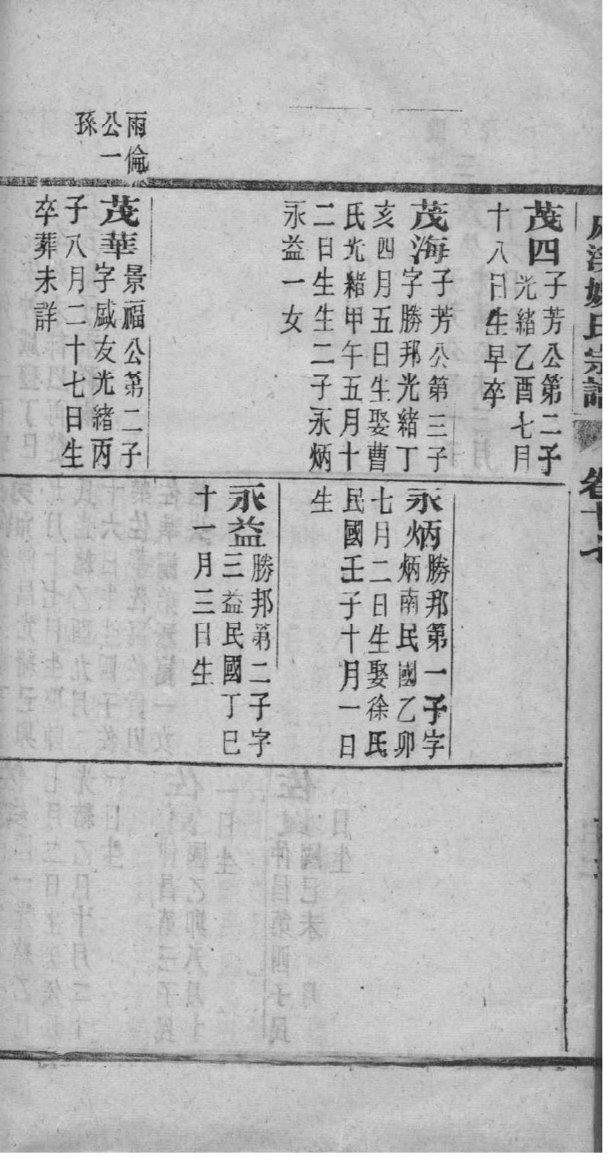 氏宗譜
卷十
茂四子芳公第二子
光緒乙酉七月
十八日生早卒
茂海子芳公第三子
字勝邦光緒丁
亥四月五日生娶曹
氏光緒甲午五月十
二日生生二子永炳
永益一女
雨倫
公一
孫
茂華景福公第二子
字咸友光緒丙
子八月二十七日生
卒葬未詳
永炳勝邦第一子字
炳南民國乙卯
七月二日生娶徐氏
民國壬子十月一日
生
永益勝邦第二子字
三益民國丁巳
十一月三日生